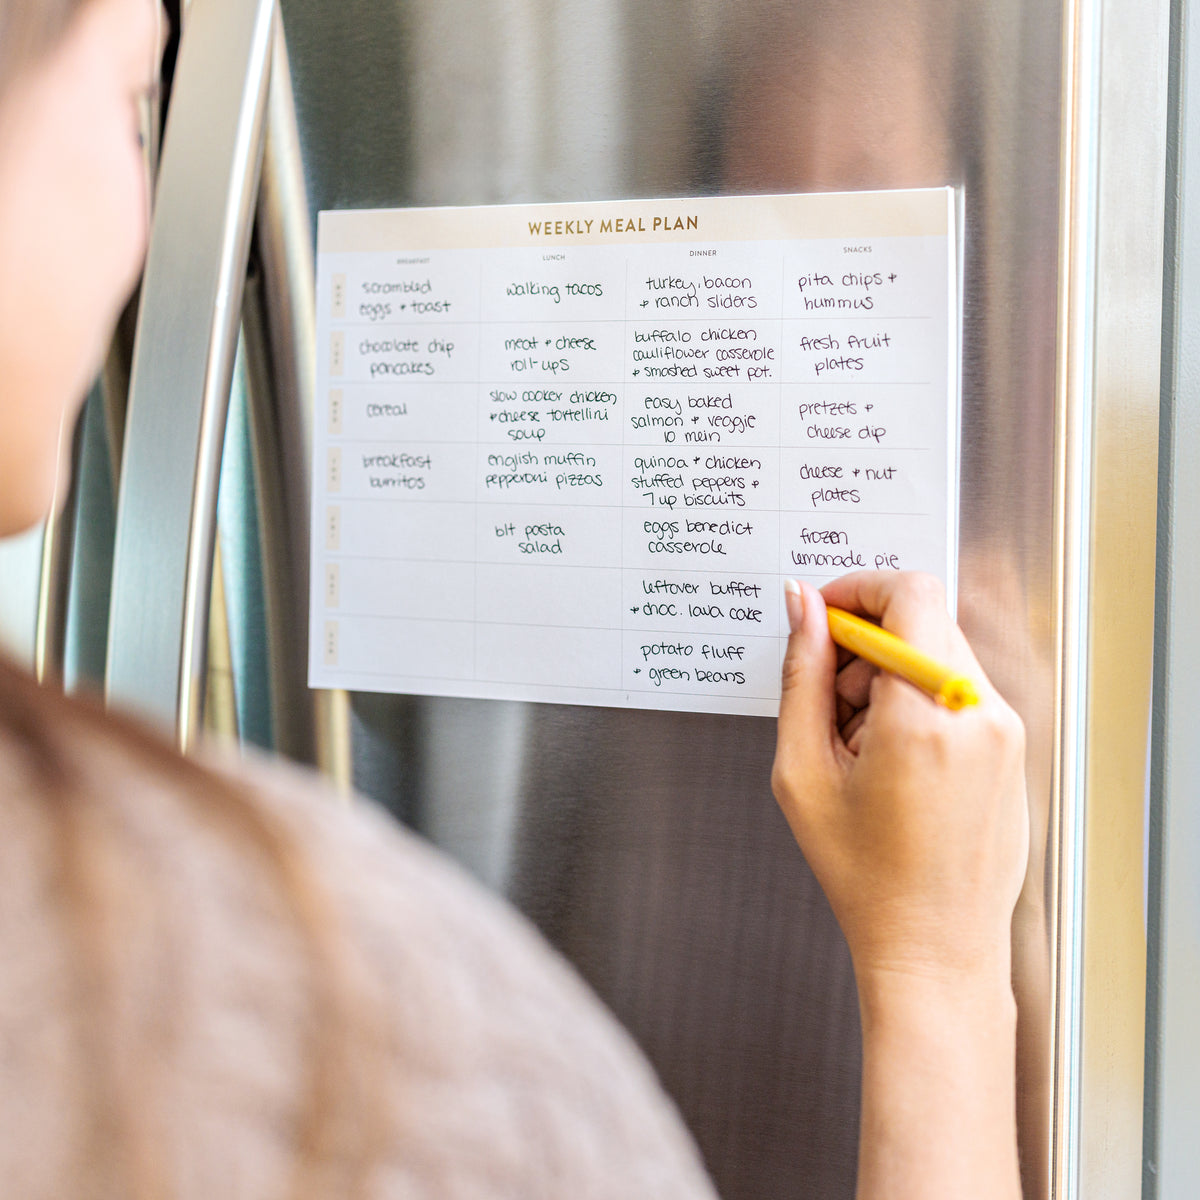 WEEKLY MEAL PLAN
BREAKFAST LUNCH DINNER SNACKS
scrambled
eggs + toast
walking tacos
turkey, bacon
+ ranch sliders
pita chips +
hummus
chocolate chip
pancakes
meat + cheese
roll-ups
buffalo chicken
cauliflower casserole
+ smashed sweet pot.
fresh fruit
plates
cereal
slow cooker chicken
+ cheese tortellini
soup
easy baked
salmon + veggie
lo mein
pretzels +
cheese dip
breakfast
burritos
english muffin
pepperoni pizzas
quinoa + chicken
stuffed peppers +
7up biscuits
cheese + nut
plates
blt pasta
salad
eggs benedict
casserole
frozen
lemonade pie
leftover buffet
+ choc. lava cake
potato fluff
+ green beans